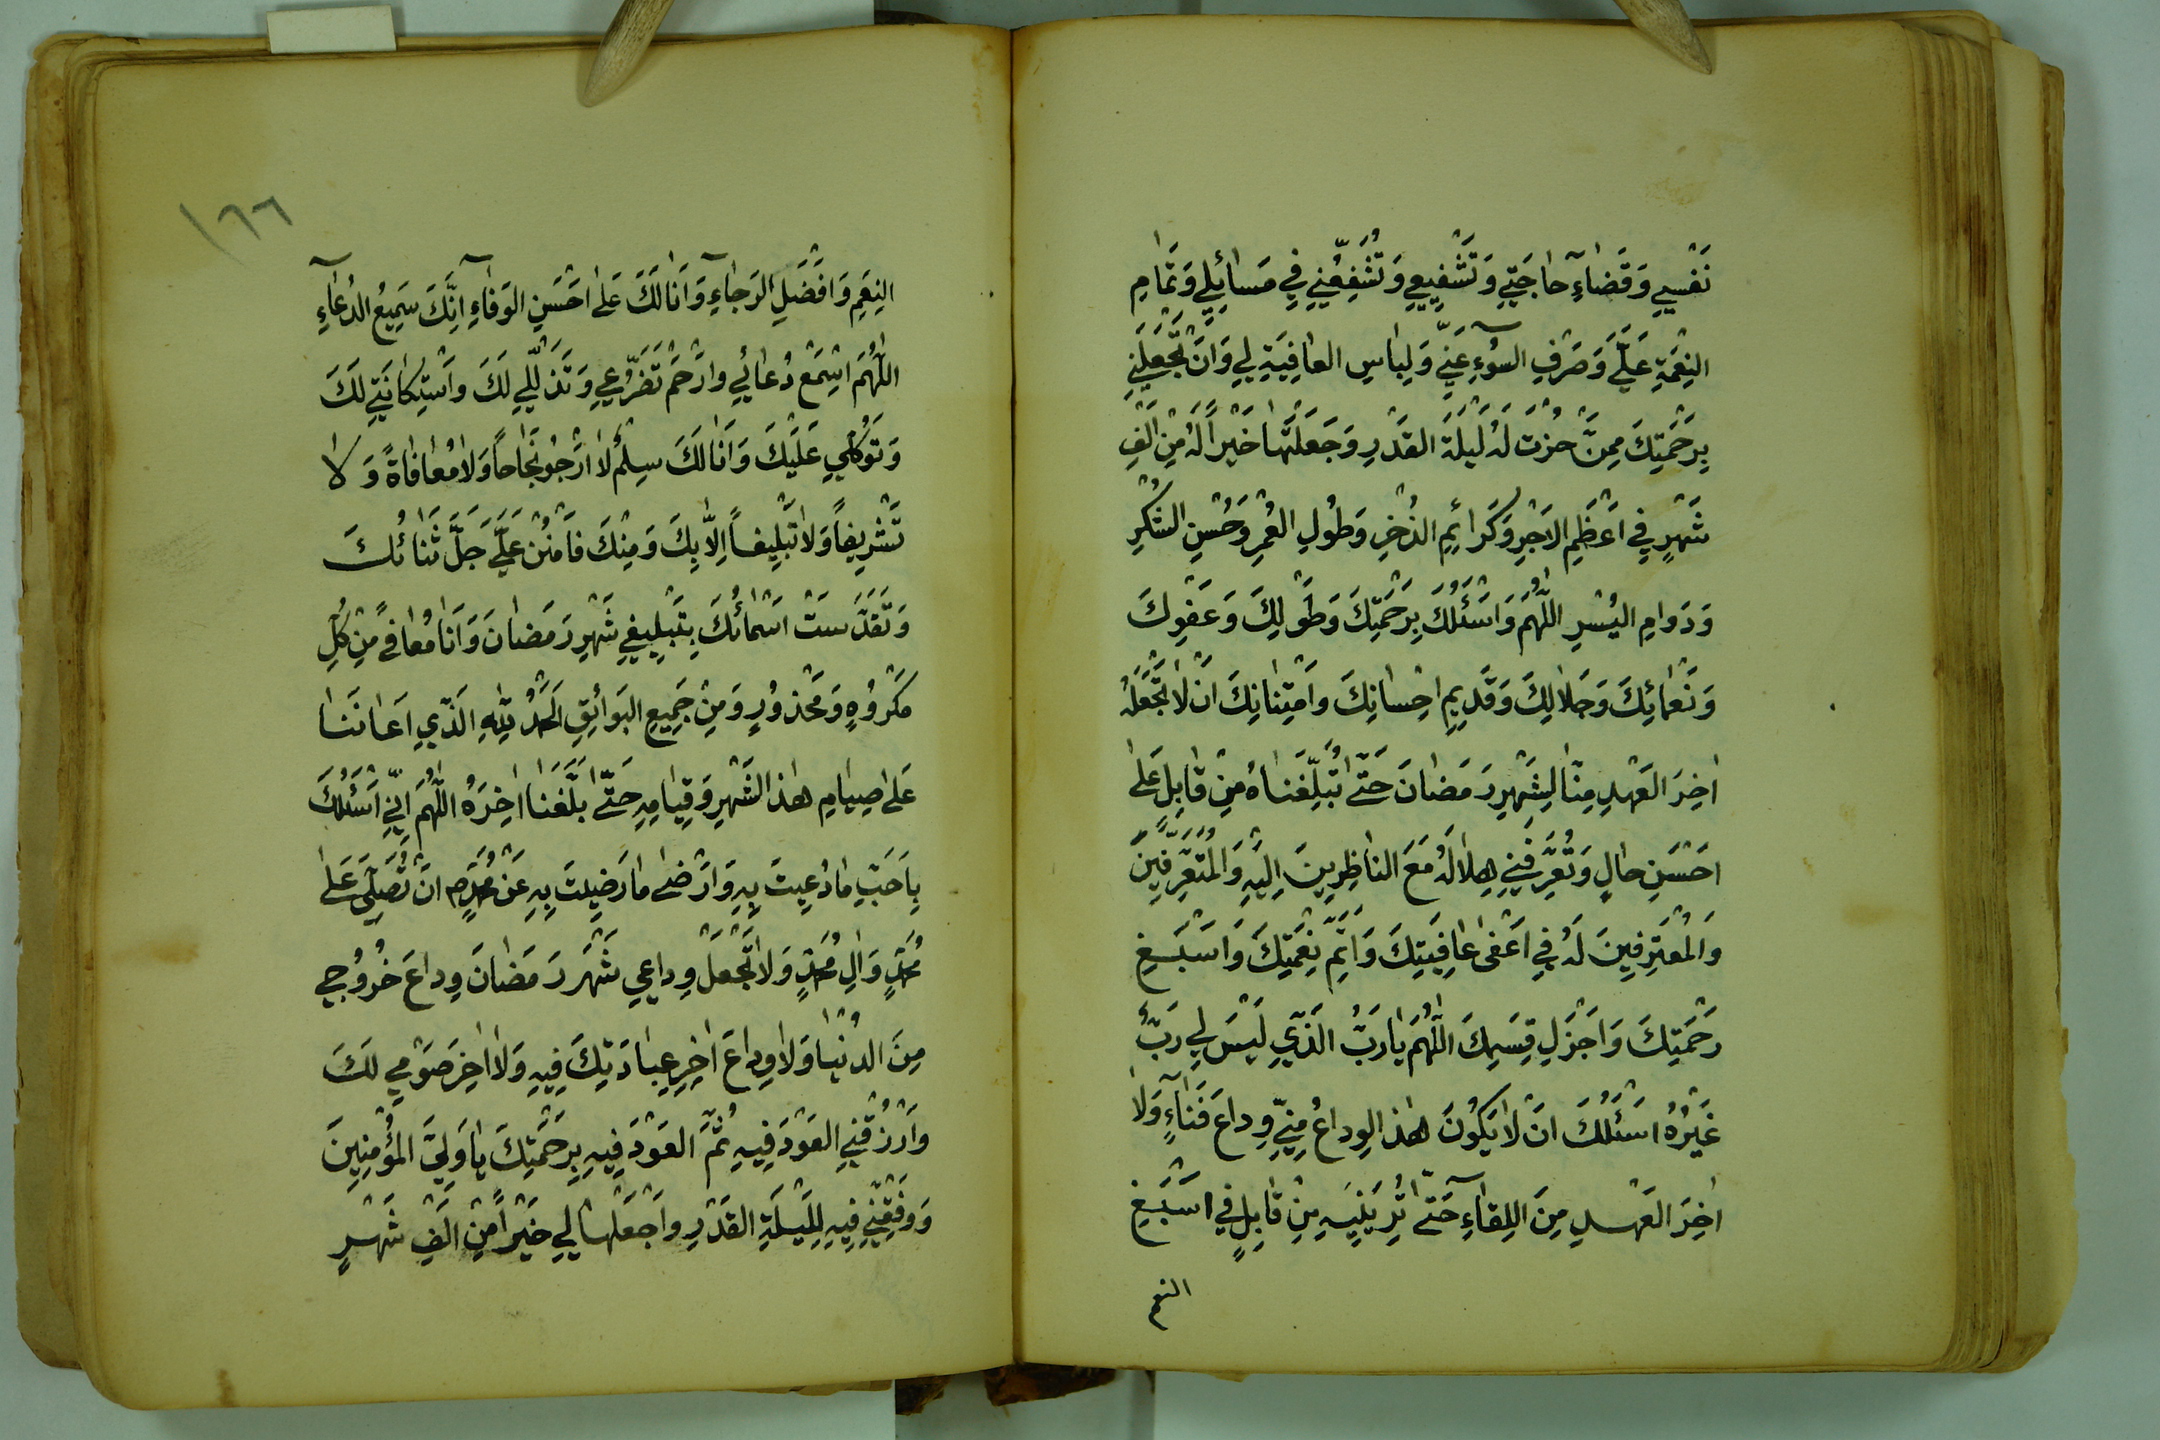 نَفْسِي وَقَضاءِ حاجَتِي وَتَشْفِيعِي وَتُشَفِّعُنِي فِي مَسائِلِي وَتَمامِ
النِعْمَةِ عَلَيَّ وَصَرْفِ السُوءِ عَنِّي وَلِباسِ العافِيَةِ لِي وَاَنْ تَجْعَلَنِي
بِرَحْمَتِكَ مِمَّنْ حُزْتَ لَهُ لَيْلَةَ القَدْرِ وَجَعَلْتَها خَيْراً لَهُ مِنْ اَلْفِ
شَهْرٍ فِي اَعْظَمِ الاَجْرِ وَكَرائِمِ الذُخْرِ وَطُولِ العُمْرِ وَحُسْنِ الشُكْرِ
وَدَوامِ اليُسْرِ اللّهُمَّ وَاَسْئَلُكَ بِرَحْمَتِكَ وَطَوْلِكَ وَعَفْوِكَ
وَنَعْمائِكَ وَجَلالِكَ وَقَدِيمِ اِحْسانِكَ وامْتِنانِكَ اَنْ لا تَجْعَلَهُ
اخِرَ العَهْدِ مِنّا لِشَهْرِ رَمَضانَ حَتّى تُبَلِّغَناهُ مِنْ قابِلٍ عَلى
اَحْسَنِ حالٍ وَتُعَرِّفَنِي هِلالَهُ مَعَ الناظِرِينَ اِلَيْهِ وَالمُتَعَرِّفِينَ
وَالمُعْتَرِفِينَ لَهُ فِي اَعْفى عافِيَتِكَ وَاَتَمِّ نِعْمَتِكَ وَاَسْبَغِ
رَحْمَتِكَ وَاَجْزَلِ قِسَمِكَ اللّهُمَّ يا رَبُّ الَّذِي لَيْسَ لِي رَبٌّ
غَيْرُهُ اَسْئَلُكَ اَنْ لا يَكُونَ هذا الوِداعُ مِنِّي وِداعَ فَناءٍ وَلا
اخِرَ العَهْدِ مِنَ اللِقاءِ حَتّى تُرِيَنِيهِ مِنْ قابِلٍ فِي اَسْبَغِ
النعم
١٦٦
النِعَمِ وَاَفْضَلِ الرَجاءِ وَاَنا لَكَ عَلى اَحْسَنِ الوَفاءِ اِنَّكَ سَمِيعُ الدُعاءِ
اللّهُمَّ اسْمَعْ دُعائِي وارْحَمْ تَضَرُّعِي وَتَذَلُّلِي لَكَ واسْتِكانَتِي لَكَ
وَتَوَكُّلِي عَلَيْكَ وَاَنا لَكَ سِلْمٌ لا اَرْجُو نَجاحاً وَلا مُعافاةً وَلا
تَشْرِيفاً وَلا تَبْلِيغاً اِلاّ بِكَ وَمِنْكَ فَامْنُنْ عَلَيَّ جَلَّ ثَنائُكَ
وَتَقَدَّسَتْ اَسْمائُكَ بِتَبْلِيغِي شَهْرَ رَمَضانَ وَاَنا مُعافىً مِنْ كُلِّ
مَكْرُوهٍ وَمَحْذُورٍ وَمِنْ جَمِيعِ البَوائِقِ الحَمْدُ لِلّهِ الَّذِي اَعانَنا
عَلى صِيامِ هذا الشَهْرِ وَقِيامِهِ حَتّى بَلَّغَنا اخِرَهُ اللّهُمَّ اِنِّي اَسْئَلُكَ
بِاَحَبِّ ما دُعِيتَ بِهِ وَاَرْضى ما رَضِيتَ بِهِ عَنْ مُحَمَّدٍ ص اَنْ تُصَلِّيَ عَلى
مُحَمَّدٍ وَالِ مُحَمَّدٍ وَلا تَجْعَلْ وِداعِي شَهْرَ رَمَضانَ وِداعَ خُرُوجِي
مِنَ الدُنْيا وَلا وِداعَ اخِرِ عِبادَتِكَ فِيهِ وَلا اخِرَ صَوْمِي لَكَ
وارْزُقْنِي العَوْدَ فِيهِ ثُمَّ العَوْدَ فِيهِ بِرَحْمَتِكَ يا وَلِيَّ المُؤْمِنِينَ
وَوَفِّقْنِي فِيهِ لِلَيْلَةِ القَدْرِ واجْعَلْها لِي خَيْراً مِنْ اَلْفِ شَهْرٍ